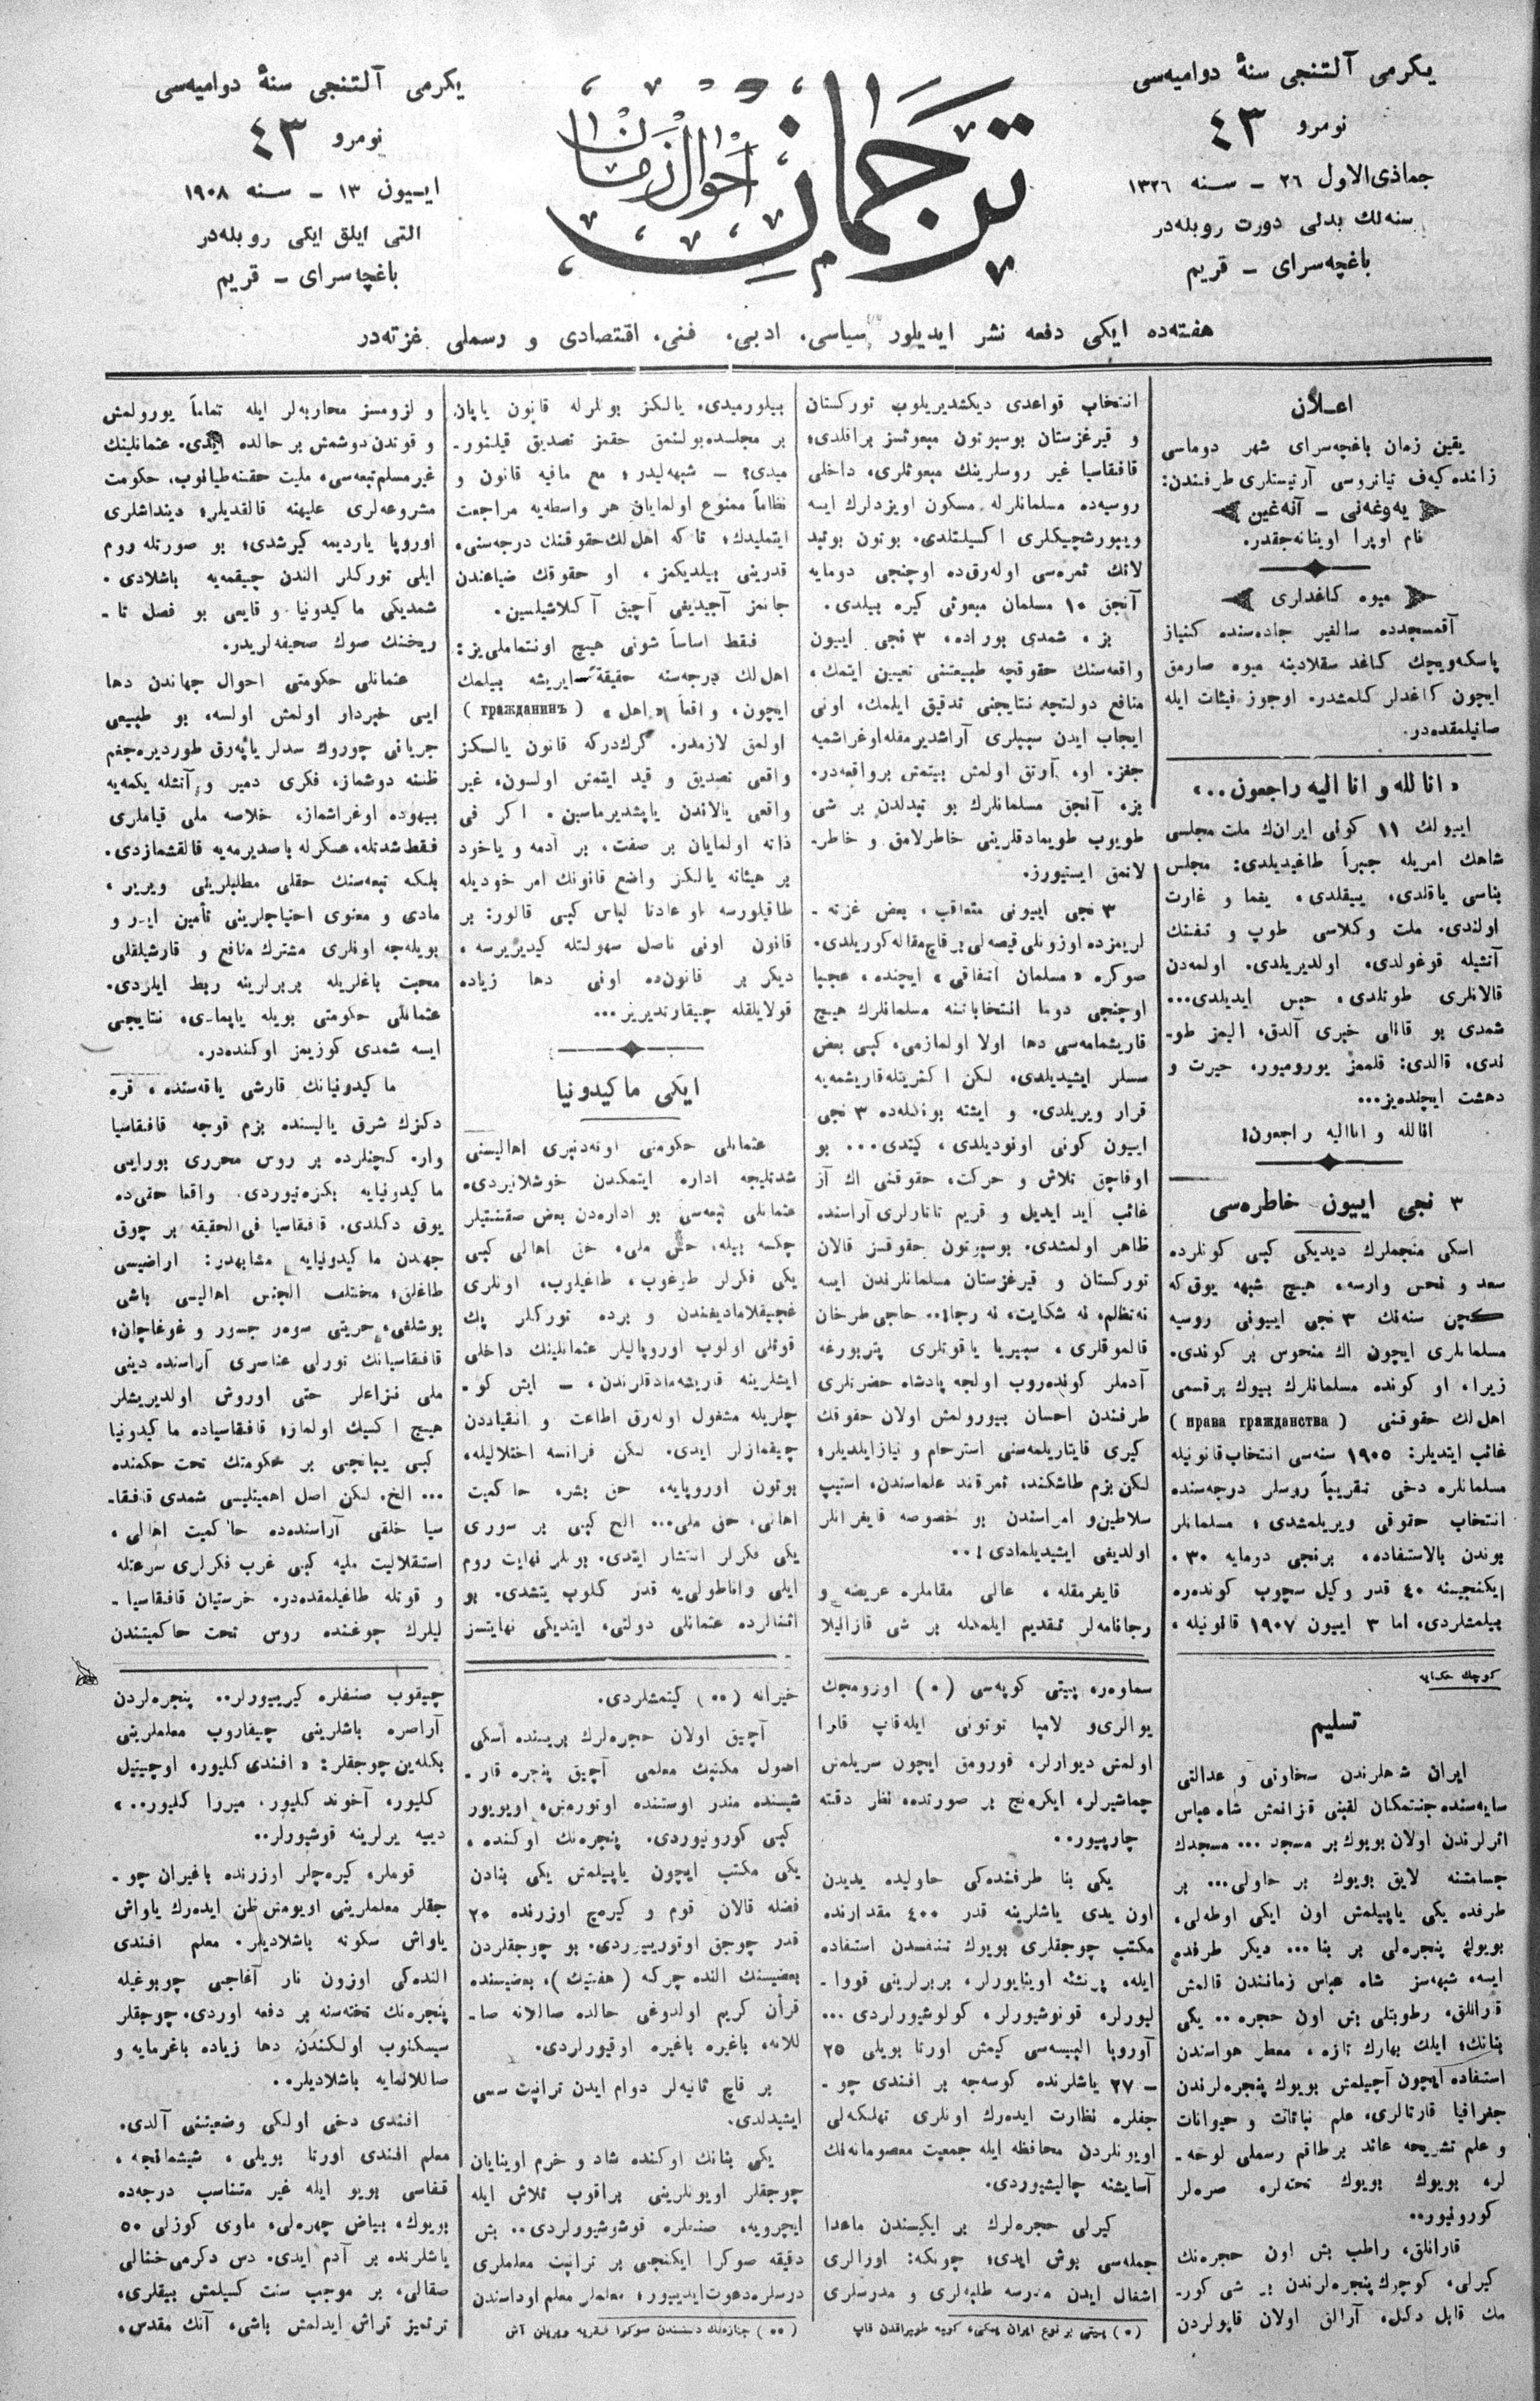 يكرمی آلتنجی سنهٔ دواميه‌سی
نومرو ٤٣
جماذی‌الاول ٢٦ – سنه ١٣٢٦
سنه‌لك بدلی دورت روبله‌در
باغچه‌سرای – قريم
ترجمان
احوال زمان
يكرمی آلتنجی سنهٔ دواميه‌سی
نومرو ٤٣
اييون ١٣ – سنه ١٩٠٨
التی ايلق ايكی روبله‌در
باغچا سرای – قريم
هفته‌ده ايكی دفعه نشر ايديلور سياسی. ادبی. فنی. اقتصادی و رسملی غزته‌در
اعلان
يقين زمان باغچه‌سرای شهر دوماسی
تياتروسی آرتيستلری طرفندن:
يه‌وغه‌نی – آنه‌غين
نام اوپرا اوينانه‌جقدر.
ميوه كاغدلری
آقمسجدده سالغير جاده‌سنده كنياز
پاسكه‌ويچك كاغد سقلادينه ميوه صارمق
ايچون كاغدلر كلمشدر. اوجوز فيئات ايله
صاتيلمقده‌در.
«انا لله و انا اليه راجعون...»
اييونك ١١ كونی ايران‌ك ملت مجلسی
شاهك امريله جبراً طاغيديلدی: مجلس
بناسی ياقلدی، ييقلدی، يغما و غارت
اولندی. ملت وكلاسی طوپ و تفنك
آتشيله قوغولدی، اولديريلدی. اولمه‌دن
قالانلری طوتلدی، حبس ايديلدی...
شمدی بو قانلی خبری آلدق، اليمز طو-
ندی، قالدی: قلممز يورومیور. حيرت و
دهشت ايچنده‌يز...
انالله و انااليه راجعون!
٣ نجی اييون خاطره‌سی
اسكی منجملرك ديديكی كبی كونلرده
سعد و نحس وارسه، هيچ شبهه يوق‌كه
كچن سنه‌نك ٣ نجی اييونی روسيه
مسلمانلری ايچون اك منحوس بر كوندی.
زيرا، او كونده مسلمانلرك بيوك بر قسمی
اهل‌لك حقوقنی (права гражданства)
غائب ايتديلر: ١٩٠٥ سنه‌سی انتخاب قانونيله
مسلمانلره دخی تقريباً روسلر درجه‌سنده
انتخاب حقوقی ويريلمشدی؛ مسلمانلر
بوندن بالاستفاده، برنجی دومايه ٣٠،
ايكنجيسنه ٤٠ قدر وكيل سچوب كوندره
بيلمشلردی، اما ٣ اييون ١٩٠٧ قانونيله،
انتخاب قواعدی ديكشديريلوب توركستان
و قيرغزستان بوسبوتون مبعوثسز براقلدی؛
قافقاسيا غير روسلرينك مبعوثلری، داخلی
روسيه‌ده مسلمانلرله مسكون اويزدلرك ايسه
ويبورشچيكلری اكسيلتلدی. بوتون بوتبد
لاتك ثمره‌سی اوله‌رق‌ده اوچنجی دومايه
آنجق ١٠ مسلمان مبعوثی كيره بيلدی.
بز، شمدی بوراده، ٣ نجی اييون
واقعه‌سنك حقوقجه طبيعتنی تعيين ايتمك،
منافع دولتجه نتايجنی تدقيق ايلمك، اونی
ايجاب ايدن سببلری آراشديرمقله اوغراشميه
جغز. او، آرتق اولمش بيتمش بر واقعه‌در.
بز، آنجق مسلمانلرك بو تبدلدن بر شی
طويوب طويمادقلرينی خاطرلامق و خاطر-
لاتمق ايستيورز.
٣ نجی اييونی متعاقب، بعض غزته-
لريمزده اوزونلی قيصه‌لی بر قاچ مقاله كوريلدی.
صوكره «مسلمان اتفاقی» ايچنده، عجبا
اوچنجی دوما انتخاباتنه مسلمانلرك هيچ
قاريشمامه‌سی دها اولا اولمازمی، كبی بعض
سسلر ايشيديلدی، لكن اكثريتله قاريشمه‌يه
قرار ويريلدی. و ايشته بونكله‌ده ٣ نجی
اييون كونی اونوديلدی، كيتدی... بو
اوفاجق تلاش و حركت، حقوقنی اك آز
غائب ايدن ايديل و قريم تاتارلری آراسنده
ظاهر اولمشدی. بوسبوتون حقوقسز قالان
توركستان و قيرغزستان مسلمانلرندن ايسه
نه تظلم، نه شكايت، نه رجا!.. حاجی طرخان
قالموقلری، سيبيريا ياقوتلری پتربورغه
آدملر كونده‌روب اولجه پادشاه حضرتلری
طرفندن احسان بيورولمش اولان حقوقك
كيری قايتاريلمه‌سنی استرحام و نياز ايلديلر؛
لكن بزم طاشكند، ثمرقند علماسندن، استيپ
سلاطين و امراسندن بو خصوصه قايغرانلر
اولديغی ايشيديلمادی!..
قايغرمقله، عالی مقاملره عريضه و
رجانامه‌لر تقديم ايلمكله بر شی قازانيلا
بيلورميدی، يالكز بونلرله قانون ياپان
بر مجلسده‌بولنمق حقمز تصديق قيلنور-
ميدی؟ – شبهه‌ليدر؛ مع مافيه قانون و
نظاماً ممنوع اولمايان هر واسطه‌يه مراجعت
ايتمليدك؛ تا كه اهل‌لك حقوقنك درجه‌سنی،
قدرينی بيلديكمز، او حقوقك ضياعندن
جانمز آجيديغی آچيق آكلاشيلسين.
فقط اساساً شونی هيچ اونتماملی‌يز:
اهل‌لك درجه‌سنه حقيقةً ايريشه بيلمك
ايچون، واقعاً «اهل» (гражданинъ)
اولمق لازمدر. كرك‌دركه قانون يالكز
واقعی تصديق و قيد ايتمش اولسون، غير
واقعی يالاندن ياپشديرماسين. اكر فی
ذاته اولمايان بر صفت، بر آدمه و ياخود
بر هيئاته يالكز واضع قانونك امر خوديله
طاقيلورسه او عادتا لباس كبی قالور: بر
قانون اونی ناصل سهولتله كيديريرسه،
ديكر بر قانون‌ده اونی دها زياده
قولايلقله چيقارتديرير...
ايكی ماكيدونيا
عثمانلی حكومتی اوته‌دنبری اهاليسنی
شدتليجه اداره ايتمكدن خوشلانيردی.
عثمانلی تبعه‌سی بو اداره‌دن بعض صقنتيلر
چكسه بيله، حق ملی، حق اهالی كبی
يكی فكرلر طوغوب، طاغيلوب، اونلری
غجيقلاماديغندن و برده توركلر پك
قوتلی اولوب اوروپاليلر عثمانلينك داخلی
ايشلرينه قاريشه‌مادقلرندن، – ايش كو-
چلريله مشغول اوله‌رق اطاعت و انقياددن
چيقمازلر ايدی. لكن فرانسه اختلاليله،
بوتون اوروپايه، حق بشر، حاكميت
اهالی، حق ملی... الخ كبی بر سوری
يكی فكرلر انتشار ايتدی. بونلر نهايت روم
ايلی و اناطولی‌يه قدر كلوب يتشدی. بو
اثنالرده عثمانلی دولتی، ايتديكی نهايتسز
و لزومسز محاربه‌لر ايله تماماً يورولمش
و قوتدن دوشمش بر حالده ايدی. عثمانلينك
غير مسلم تبعه‌سی، مليت حقنه طيانوب، حكومت
مشروعه‌لری عليهنه قالقديلر؛ دينداشلری
اوروپا يارديمه كيرشدی؛ بو صورتله روم
ايلی توركلر الندن چيقمه‌يه باشلادی.
شمديكی ماكيدونيا وقايعی بو فصل تا-
ريخنك صوك صحيفه‌لريدر.
عثمانلی حكومتی احوال جهاندن دها
ايی خبردار اولمش اولسه، بو طبيعی
جريانی چوروك سدلر ياپه‌رق طورديره‌جغم
ظننه دوشماز، فكری دمير و آتشله يكمه‌يه
بيهوده اوغراشماز، خلاصه ملی قياملری
فقط شدتله، عسكرله باصديرمه‌يه قالقشمازدی.
بلكه تبعه‌سنك حقلی مطلبلرينی ويرير،
مادی و معنوی احتياجلرينی تأمين ايدر و
بويله‌جه اونلری مشترك منافع و قارشيلقلی
محبت باغلريله بربرلرينه ربط ايلردی.
عثمانلی حكومتی بويله ياپمادی، نتايجی
ايسه شمدی كوزيمز اوكنده‌در.
ماكيدونيانك قارشی ياقه‌سنده، قره
دكزك شرق ياليسنده بزم قوجه قافقاسيا
وار. كچنلرده بر روس محرری بورايی
ماكيدونيايه بكزه‌تيوردی. واقعا حقی‌ده
يوق دكلدی. قافقاسيا فی‌الحقيقه بر چوق
جهتدن ماكيدونيايه مشابهدر: اراضيسی
طاغلق؛ مختلف الجنس اهاليسی باشی
بوشلغی، حريتی سوه‌ر جسور و غوغاچان؛
قافقاسيانك تورلی عناصری آراسنده دينی
ملی نزاعلر حتی اوروش اولديريشلر
هيچ اكسيك اولماز؛ قافقاسياده ماكيدونيا
كبی يبانجی بر حكومتك تحت حكمنده
... الخ. لكن اصل اهميتليسی شمدی قافقا-
سيا خلقی آراسنده‌ده حاكميت اهالی،
استقلاليت مليه كبی غرب فكرلری سرعتله
و قوتله طاغيلمقده‌در. خرستيان قافقاسيا-
ليلرك چوغنده روس تحت حاكميتندن
كوچك حكايه
تسليم
ايران شاهلرندن سخاوتی و عدالتی
سايه‌سنده جنتمكان لقبنی قزانمش شاه عباس
اثرلرندن اولان بويوك بر مسجد... مسجدك
جسامتنه لايق بويوك بر حاولی... بر
طرفده يكی ياپيلمش اون ايكی اوطه‌لی،
بويوك پنجره‌لی بر بنا... ديكر طرفده
ايسه، شبهه‌سز شاه عباس زماننندن قالمش
قرانلق، رطوبتلی بش اون حجره.. يكی
بنانك؛ ايلك بهارك تازه، معطر هواسندن
استفاده ايچون آچيلمش بويوك پنجره‌لرندن
جغرافيا قارتالری، علم نباتات و حيوانات
و علم تشريحه عائد بر طاقم رسملی لوحه-
لر، بويوك بويوك تخته‌لر، صره‌لر
كورونيور..
قارانلق، راطب بش اون حجره‌نك
كيرلی، كوچرك پنجره‌لرندن بر شی كور-
مك قابل دكل، آرالق اولان قاپولردن
سماوه‌ر، پيتی كوپه‌سی (*) اوزومجك
يوالری و لامپا توتونی ايله قاپ قارا
اولمش ديوارلر، قورومق ايچون سريلمش
چماشيرلر، ايكرنج بر صورتده، نظر دقته
چارپيور..
يكی بنا طرفنده‌كی حاوليده يديدن
اون يدی ياشلرينه قدر ٤٠٠ مقدارنده
مكتب چوجقلری بويوك تنفسدن استفاده
ايله، پرنشئه اوينايورلر، بربرلرينی قووا-
ليورلر، قونوشيورلر، كولوشيورلردی...
آوروپا البيسه‌سی كيمش اورتا بويلی ٢٥
– ٢٧ ياشلرنده كوسه‌جه بر افندی چو-
جقلره نظارت ايده‌رك اونلری تهلكه‌لی
اويونلردن محافظه ايله جمعيت معصومانه‌نك
آسايشنه چاليشيوردی.
كيرلی حجره‌لرك بر ايكيسندن ماعدا
جمله‌سی بوش ايدی؛ چونكه: اورالری
اشغال ايدن مدرسه طلبه‌لری و مدرسلری
(*) پيتی بر نوع ايران يمكی، كوپه طوپراقدن قاپ
خيراته (**) كيتمشلردی.
آچيق اولان حجره‌لرك بريسنده اسكی
اصول مكتبك معلمی آچيق پنجره قار-
شيسنده مندر اوستنده اوتورمش، اويويور
كبی كورونيوردی. پنجره‌نك اوكنده،
يكی مكتب ايچون ياپيلمش يكی بنادن
فضله قالان قوم و كيرمچ اوزرنده ٢٠
قدر چوجق اوتورييوردی. بو چوجقلردن
بعضيسنك النده چركه (هفتيك)، بعضيسنده
قرأن كريم اولدوغی حالده صاللانه صا-
للانه، باغيره باغيره اوقيورلردی.
بر قاچ ثانيه‌لر دوام ايدن ترانپت سسی
ايشيدلدی.
يكی بنانك اوكنده شاد و خرم اوينايان
چوجقلر اويونلرينی براقوب تلاش ايله
ايچرويه، صنفلره قوشوشيورلردی.. بش
دقيقه صوكرا ايكنجی بر ترانپت معلملری
درسلره دعوت ايدييور؛ معلملر معلم اوداسندن
(**) جنازه‌نك دفنندن صوكرا فقريه ويريلن آش
چيقوب صنفلره كيرييورلر.. پنجره‌لردن
آراصره باشلرينی چيقاروب معلملرينی
بكله‌ين چوجقلر: «افندی كليور، اوچيتيل
كليور، آخوند كليور. ميرزا كليور..»
دييه يرلرينه قوشيورلر..
قوملر، كيره‌چلر اوزرنده باغيران چو-
جقلر معلملرينی اويومش ظن ايده‌رك ياواش
ياواش سكوته باشلاديلر. معلم افندی
النده‌كی اوزون نار آغاجی چوبوغيله
پنجره‌نك تخته‌سنه بر دفعه اوردی. چوجقلر
سيسكنوب اولكندن دها زياده باغرمايه و
صاللانمايه باشلاديلر..
افندی دخی اولكی وضعيتنی آلدی.
معلم افندی اورتا بويلی، شيشمانجه،
قفاسی بويو ايله غير متناسب درجه‌ده
بويوك، بياض چهره‌لی، ماوی كوزلی ٥٠
ياشلرنده بر آدم ايدی. دس دكرمی خنالی
صقالی، بر موجب سنت كسيلمش بيقلری،
ترتميز تراش ايدلمش باشی، آنك مقدس،